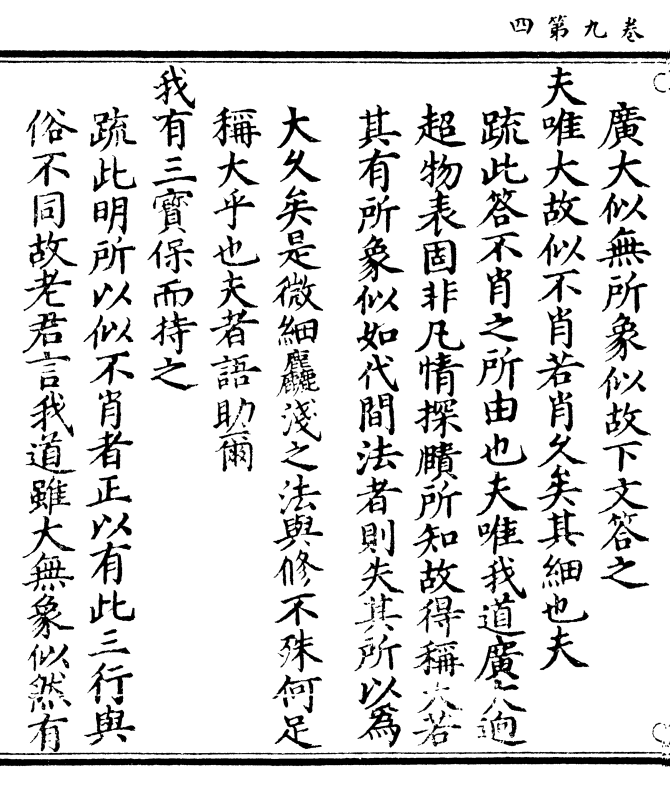 卷九第四
廣大似無所象似故下文答之
夫唯大故似不肖若肖久矣其細也夫
疏此答不肖之所由也夫唯我道廣大逈
超物表固非凡情探賾所知故得稱大若
其有所象似如代間法者則失其所以為
大久矣是微細麤淺之法與修不殊何足
稱大乎也夫者語助爾
我有三寶保而持之
疏此明所以似不肖者正以有此三行與
俗不同故老君言我道雖大無象似然有